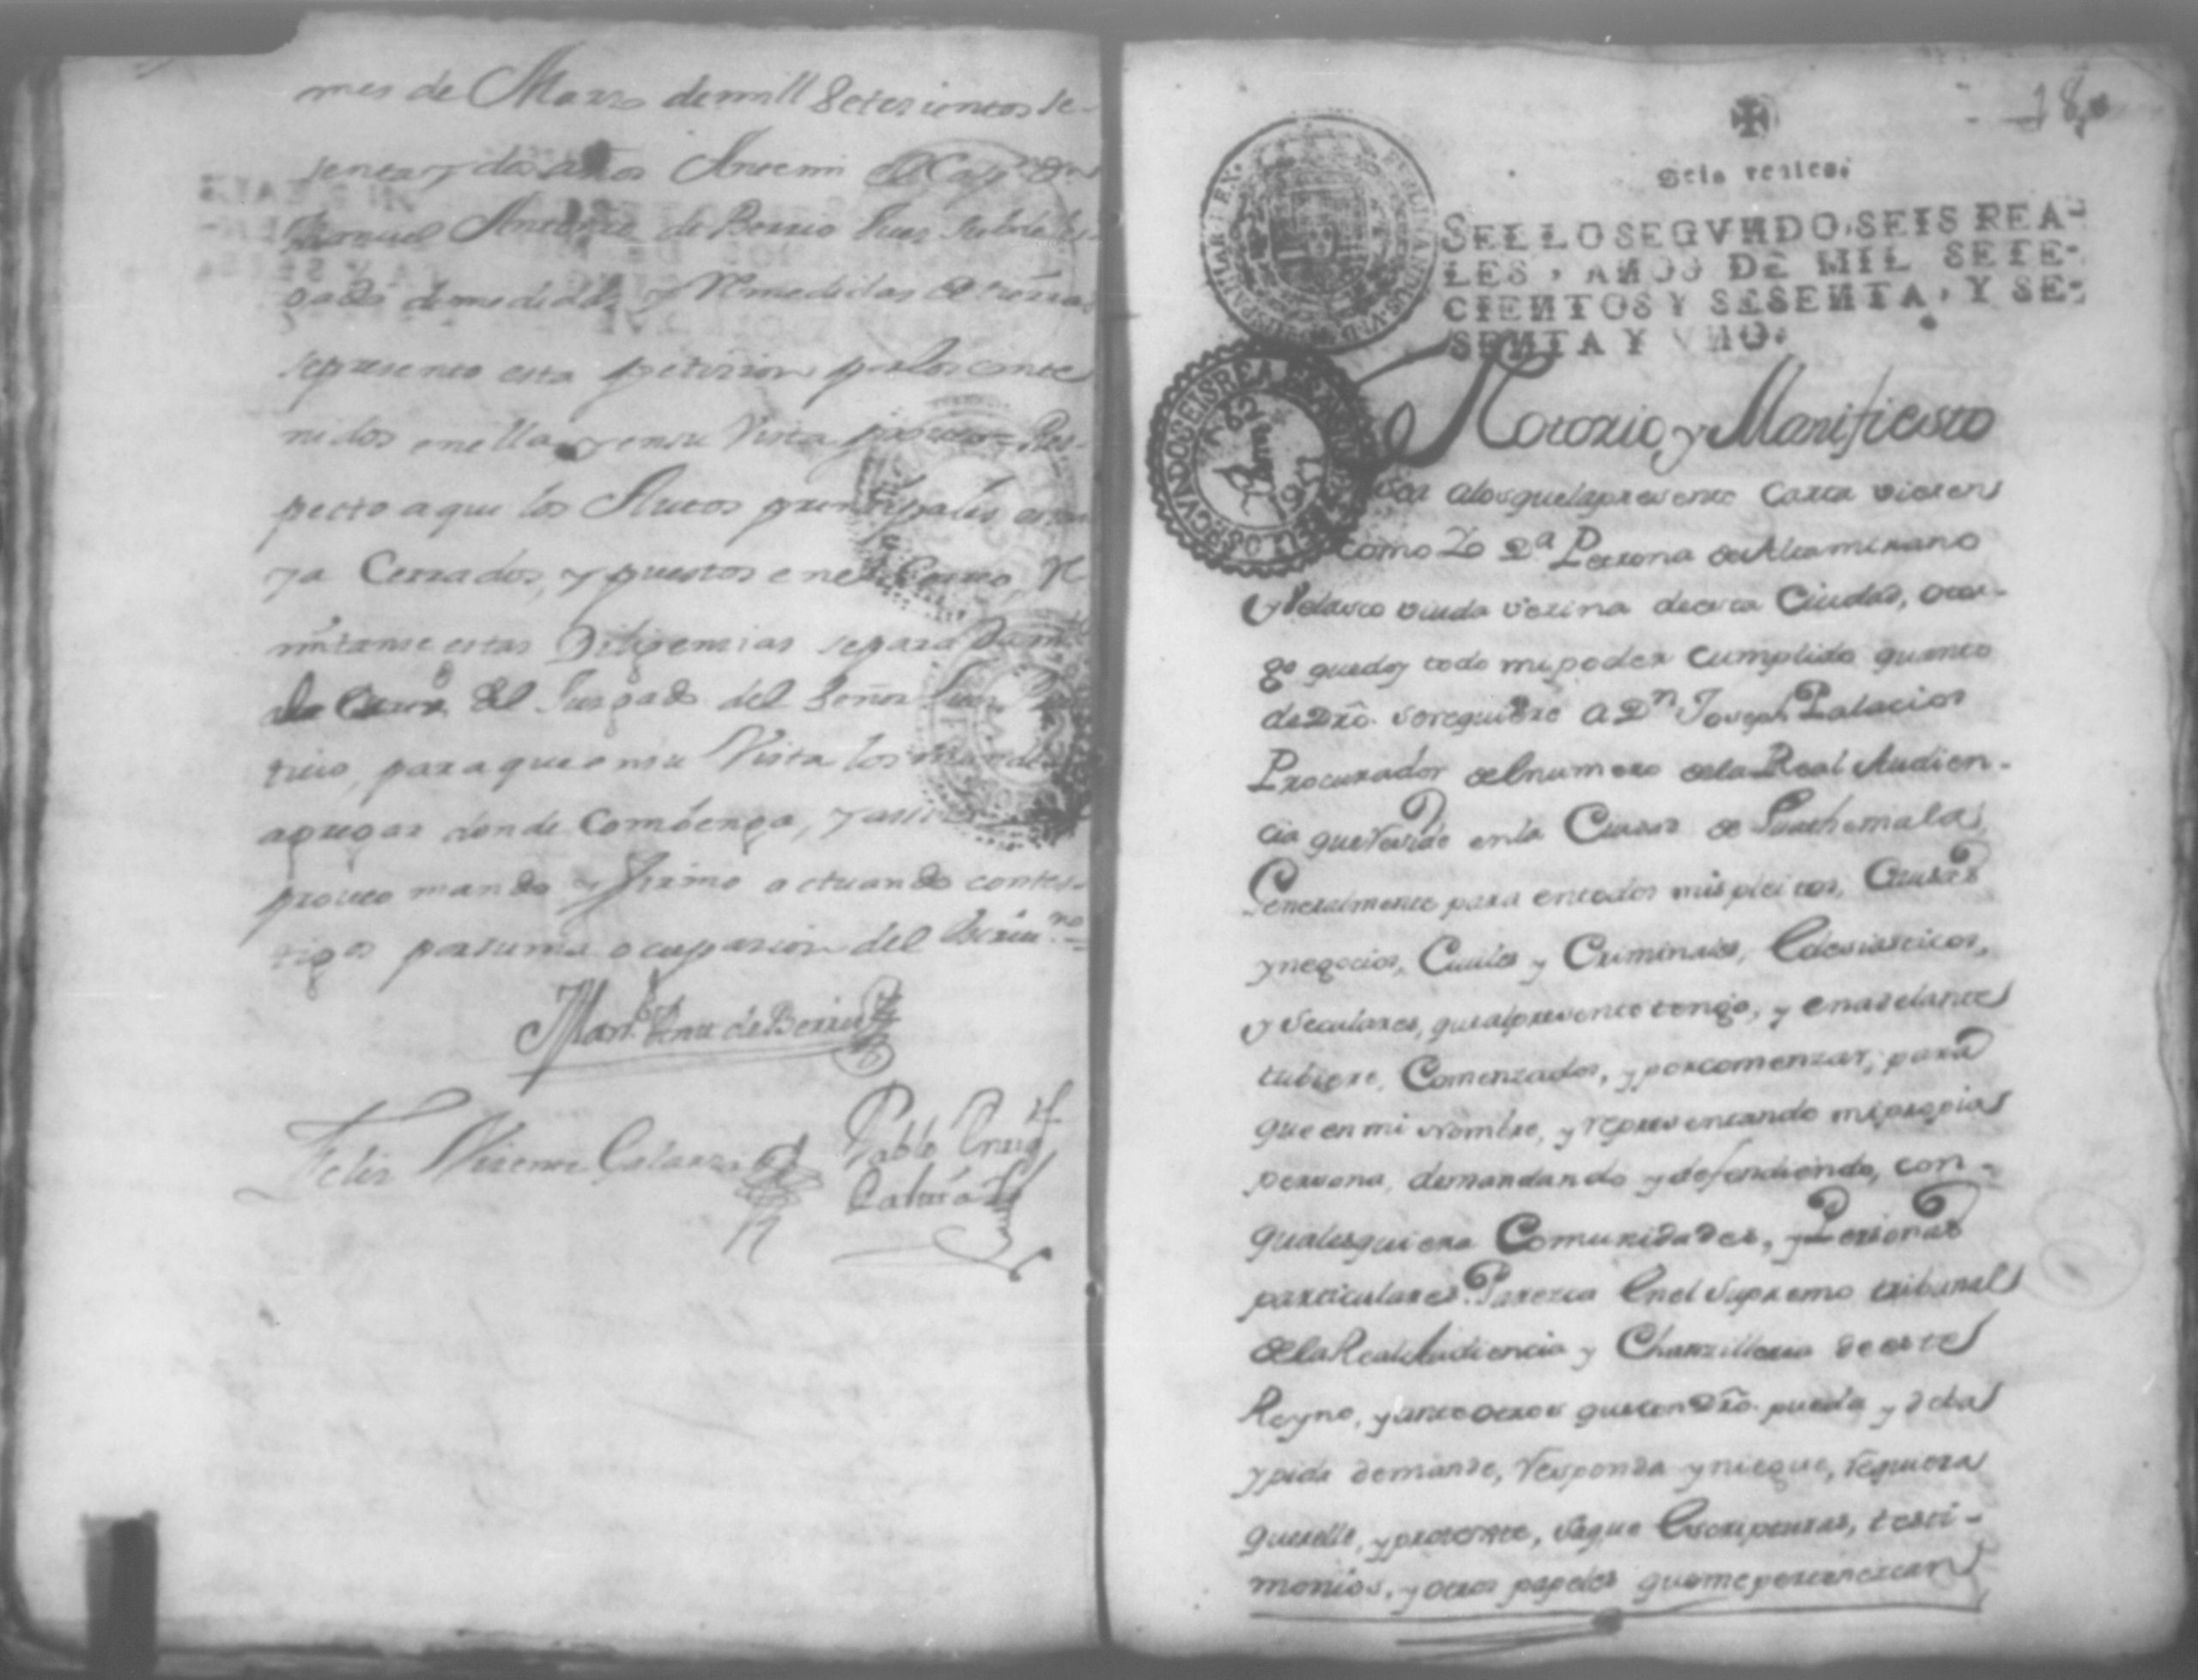 mes de Marzo de mill Setesientos se-
senta y dos años Antemi el Cap.n Dn
Manuel Antonio de Berrio Juez Subdele-
gado de medidas y Remedidas de tierras
se presento esta petision por los conte
nidos en ella, y en su Vista Res-
pecto a que los Autos prinsipales estan
ya Cerrados, y puestos en el Correo, Re
mitanse estas Diligensias separadam.te
al Juzgado del Señor Juez
para que en su Vista los mande
agregar donde Combenga, y assi lo
proveo mando y firmo actuando con tes-
tigos por suma ocupasion del Escriv.no =
Man.l Ant.o de Berrio
Felix Visente Pablo
18
Seis reales.
SELLO SEGVNDO, SEIS REA-
LES, AÑOS DE MIL SETE-
CIENTOS Y SESENTA, Y SE-
SENTA Y VNO.
Notorio, y Manifiesto
sea a los que la presente Carta vieren
como Yo Da Petrona de Altamirano
y Velasco viuda vezina de esta Ciudad, otor-
go que doy todo mi poder cumplido quanto
de Dro. se requiere a Dn Joseph Palacios
Procurador del numero de la Real Audien-
cia que reside en la Ciudad de Guathemala
Generalmente para en todos mis pleitos, Causas
y negocios, Civiles y Criminales, Eclesiasticos,
y Seculares, que al presente tengo, y en adelante
tubiere, Comenzados, y por comenzar, para
que en mi Nombre, y representando mi propia
persona, demandando y defendiendo, con-
qualesquiera Comunidades, y Personas
particulares. Parezca en el Supremo tribunal
de la Real Audiencia y Chanzilleria de este
Reyno, y ante otros que con Dro. pueda y deba
y pida demande, responda y niegue, requiera
querelle, y proteste, saque Escripturas, testi-
monios, y otros papeles que me pertenezcan